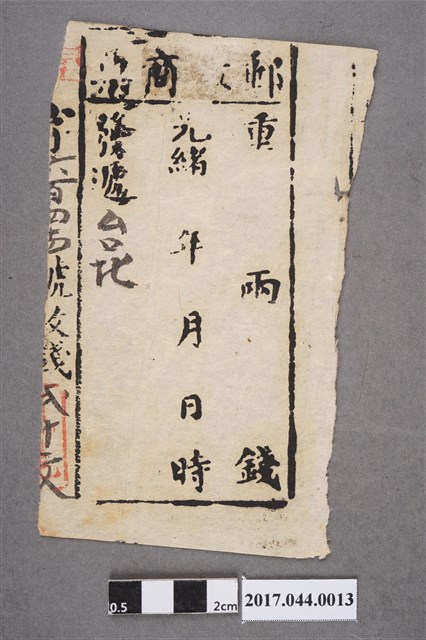 郵 商
重 兩 錢
光緒 年 月 日 時
台北
六百四 號收錢 十文
0.5 2cm
2017.044.0013